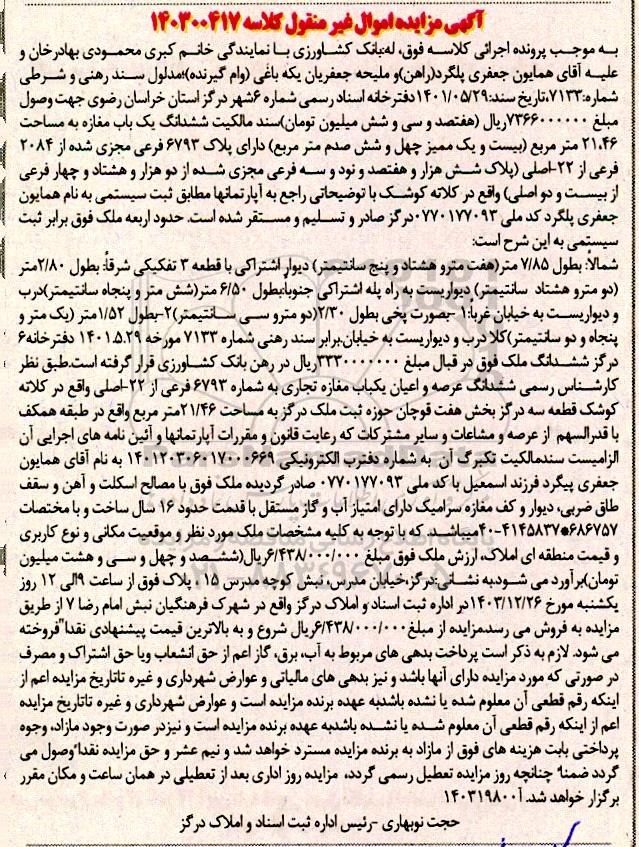 آگهی مزایده اموال غیر منقول کلاسه ۱۴۰۳۰۰۴۱۷
به موجب پرونده اجرائی کلاسه فوق، له:بانک کشاورزی با نمایندگی خانم کبری محمودی بهادرخان و
علیه آقای همایون جعفری پلگرد(راهن)و ملیحه جعفریان یکه باغی (وام گیرنده)؛مدلول سند رهنی و شرطی
شماره:۷۱۳۳،تاریخ سند:۱۴۰۱/۰۵/۲۹دفترخانه اسناد رسمی شماره ۶شهر درگز استان خراسان رضوی جهت وصول
مبلغ ۷۳۶۶۰۰۰۰۰۰ریال (هفتصد و سی و شش میلیون تومان)سند مالکیت ششدانگ یک باب مغازه به مساحت
۲۱.۴۶ متر مربع (بیست و یک ممیز چهل و شش صدم متر مربع) دارای پلاک ۶۷۹۳ فرعی مجزی شده از ۲۰۸۴
فرعی از ۲۲-اصلی (پلاک شش هزار و هفتصد و نود و سه فرعی مجزی شده از دو هزار و هشتاد و چهار فرعی
از بیست و دو اصلی) واقع در کلاته کوشک با توضیحاتی راجع به آپارتمانها مطابق ثبت سیستمی به نام همایون
جعفری پلگرد کد ملی ۰۷۷۰۱۷۷۰۹۳درگز صادر و تسلیم و مستقر شده است. حدود اربعه ملک فوق برابر ثبت
سیستمی به این شرح است:
شمالاً: بطول ۷/۸۵ متر(هفت مترو هشتاد و پنج سانتیمتر) دیوار اشتراکی با قطعه ۳ تفکیکی شرقاً: بطول ۲/۸۰متر
(دو مترو هشتاد سانتیمتر) دیواریست به راه پله اشتراکی جنوباً:بطول ۶/۵۰ متر(شش متر و پنجاه سانتیمتر)درب
و دیواریست به خیابان غرباً:۱-بصورت پخی بطول ۲/۳۰(دو مترو سی سانتیمتر)۲-بطول ۱/۵۲متر (یک متر و
پنجاه و دو سانتیمتر)کلا درب و دیواریست به خیابان.برابر سند رهنی شماره ۷۱۳۳ مورخه ۱۴۰۱.۵.۲۹ دفترخانه۶
درگز ششدانگ ملک فوق در قبال مبلغ ۳۳۳۰۰۰۰۰۰۰ریال در رهن بانک کشاورزی قرار گرفته است.طبق نظر
کارشناس رسمی ششدانگ عرصه و اعیان یکباب مغازه تجاری به شماره ۶۷۹۳ فرعی از ۲۲-اصلی واقع در کلاته
کوشک قطعه سه درگز بخش هفت قوچان حوزه ثبت ملک درگز به مساحت ۲۱/۴۶متر مربع واقع در طبقه همکف
با قدرالسهم از عرصه و مشاعات و سایر مشترکات که رعایت قانون و مقررات آپارتمانها و آئین نامه های اجرایی آن
الزامیست سندمالکیت تکبرگ آن به شماره دفترب الکترونیکی ۱۴۰۱۲۰۳۰۶۰۱۷۰۰۰۶۶۹ به نام آقای همایون
جعفری پیگرد فرزند اسمعیل با کد ملی ۰۷۷۰۱۷۷۰۹۳ صادر گردیده ملک فوق با مصالح اسکلت و آهن و سقف
طاق ضربی، دیوار و کف مغازه سرامیک دارای امتیاز آب و گاز مستقل با قدمت حدود ۱۶ سال ساخت و با مختصات
۶۸۶۷۵۷*۴۰-۴۱۴۵۸۳۷میباشد. که با توجه به کلیه مشخصات ملک مورد نظر و موقعیت مکانی و نوع کاربری
و قیمت منطقه ای املاک، ارزش ملک فوق مبلغ ۶/۴۳۸/۰۰۰/۰۰۰ریال(ششصد و چهل و سی و هشت میلیون
تومان)برآورد می شودبه نشانی:درگز،خیابان مدرس، نبش کوچه مدرس ۱۵ ، پلاک فوق از ساعت ۹الی ۱۲ روز
یکشنبه مورخ ۱۴۰۳/۱۲/۲۶در اداره ثبت اسناد و املاک درگز واقع در شهرک فرهنگیان نبش امام رضا ۷ از طریق
مزایده به فروش می رسد.مزایده از مبلغ۶/۴۳۸/۰۰۰/۰۰۰ریال شروع و به بالاترین قیمت پیشنهادی نقدا"فروخته
می شود. لازم به ذکر است پرداخت بدهی های مربوط به آب، برق، گاز اعم از حق انشعاب ویا حق اشتراک و مصرف
در صورتی که مورد مزایده دارای آنها باشد و نیز بدهی های مالیاتی و عوارض شهرداری و غیره تاتاریخ مزایده اعم از
اینکه رقم قطعی آن معلوم شده یا نشده باشدبه عهده برنده مزایده است و عوارض شهرداری و غیره تاتاریخ مزایده
اعم از اینکه رقم قطعی آن معلوم شده یا نشده باشدبه عهده برنده مزایده است و نیزدر صورت وجود مازاد، وجوه
پرداختی بابت هزینه های فوق از مازاد به برنده مزایده مسترد خواهد شد و نیم عشر و حق مزایده نقدا"وصول می
گردد ضمنا" چنانچه روز مزایده تعطیل رسمی گردد، مزایده روز اداری بعد از تعطیلی در همان ساعت و مکان مقرر
برگزار خواهد شد. آ۱۴۰۳۱۹۸۰۰
حجت نوبهاری -رئیس اداره ثبت اسناد و املاک درگز